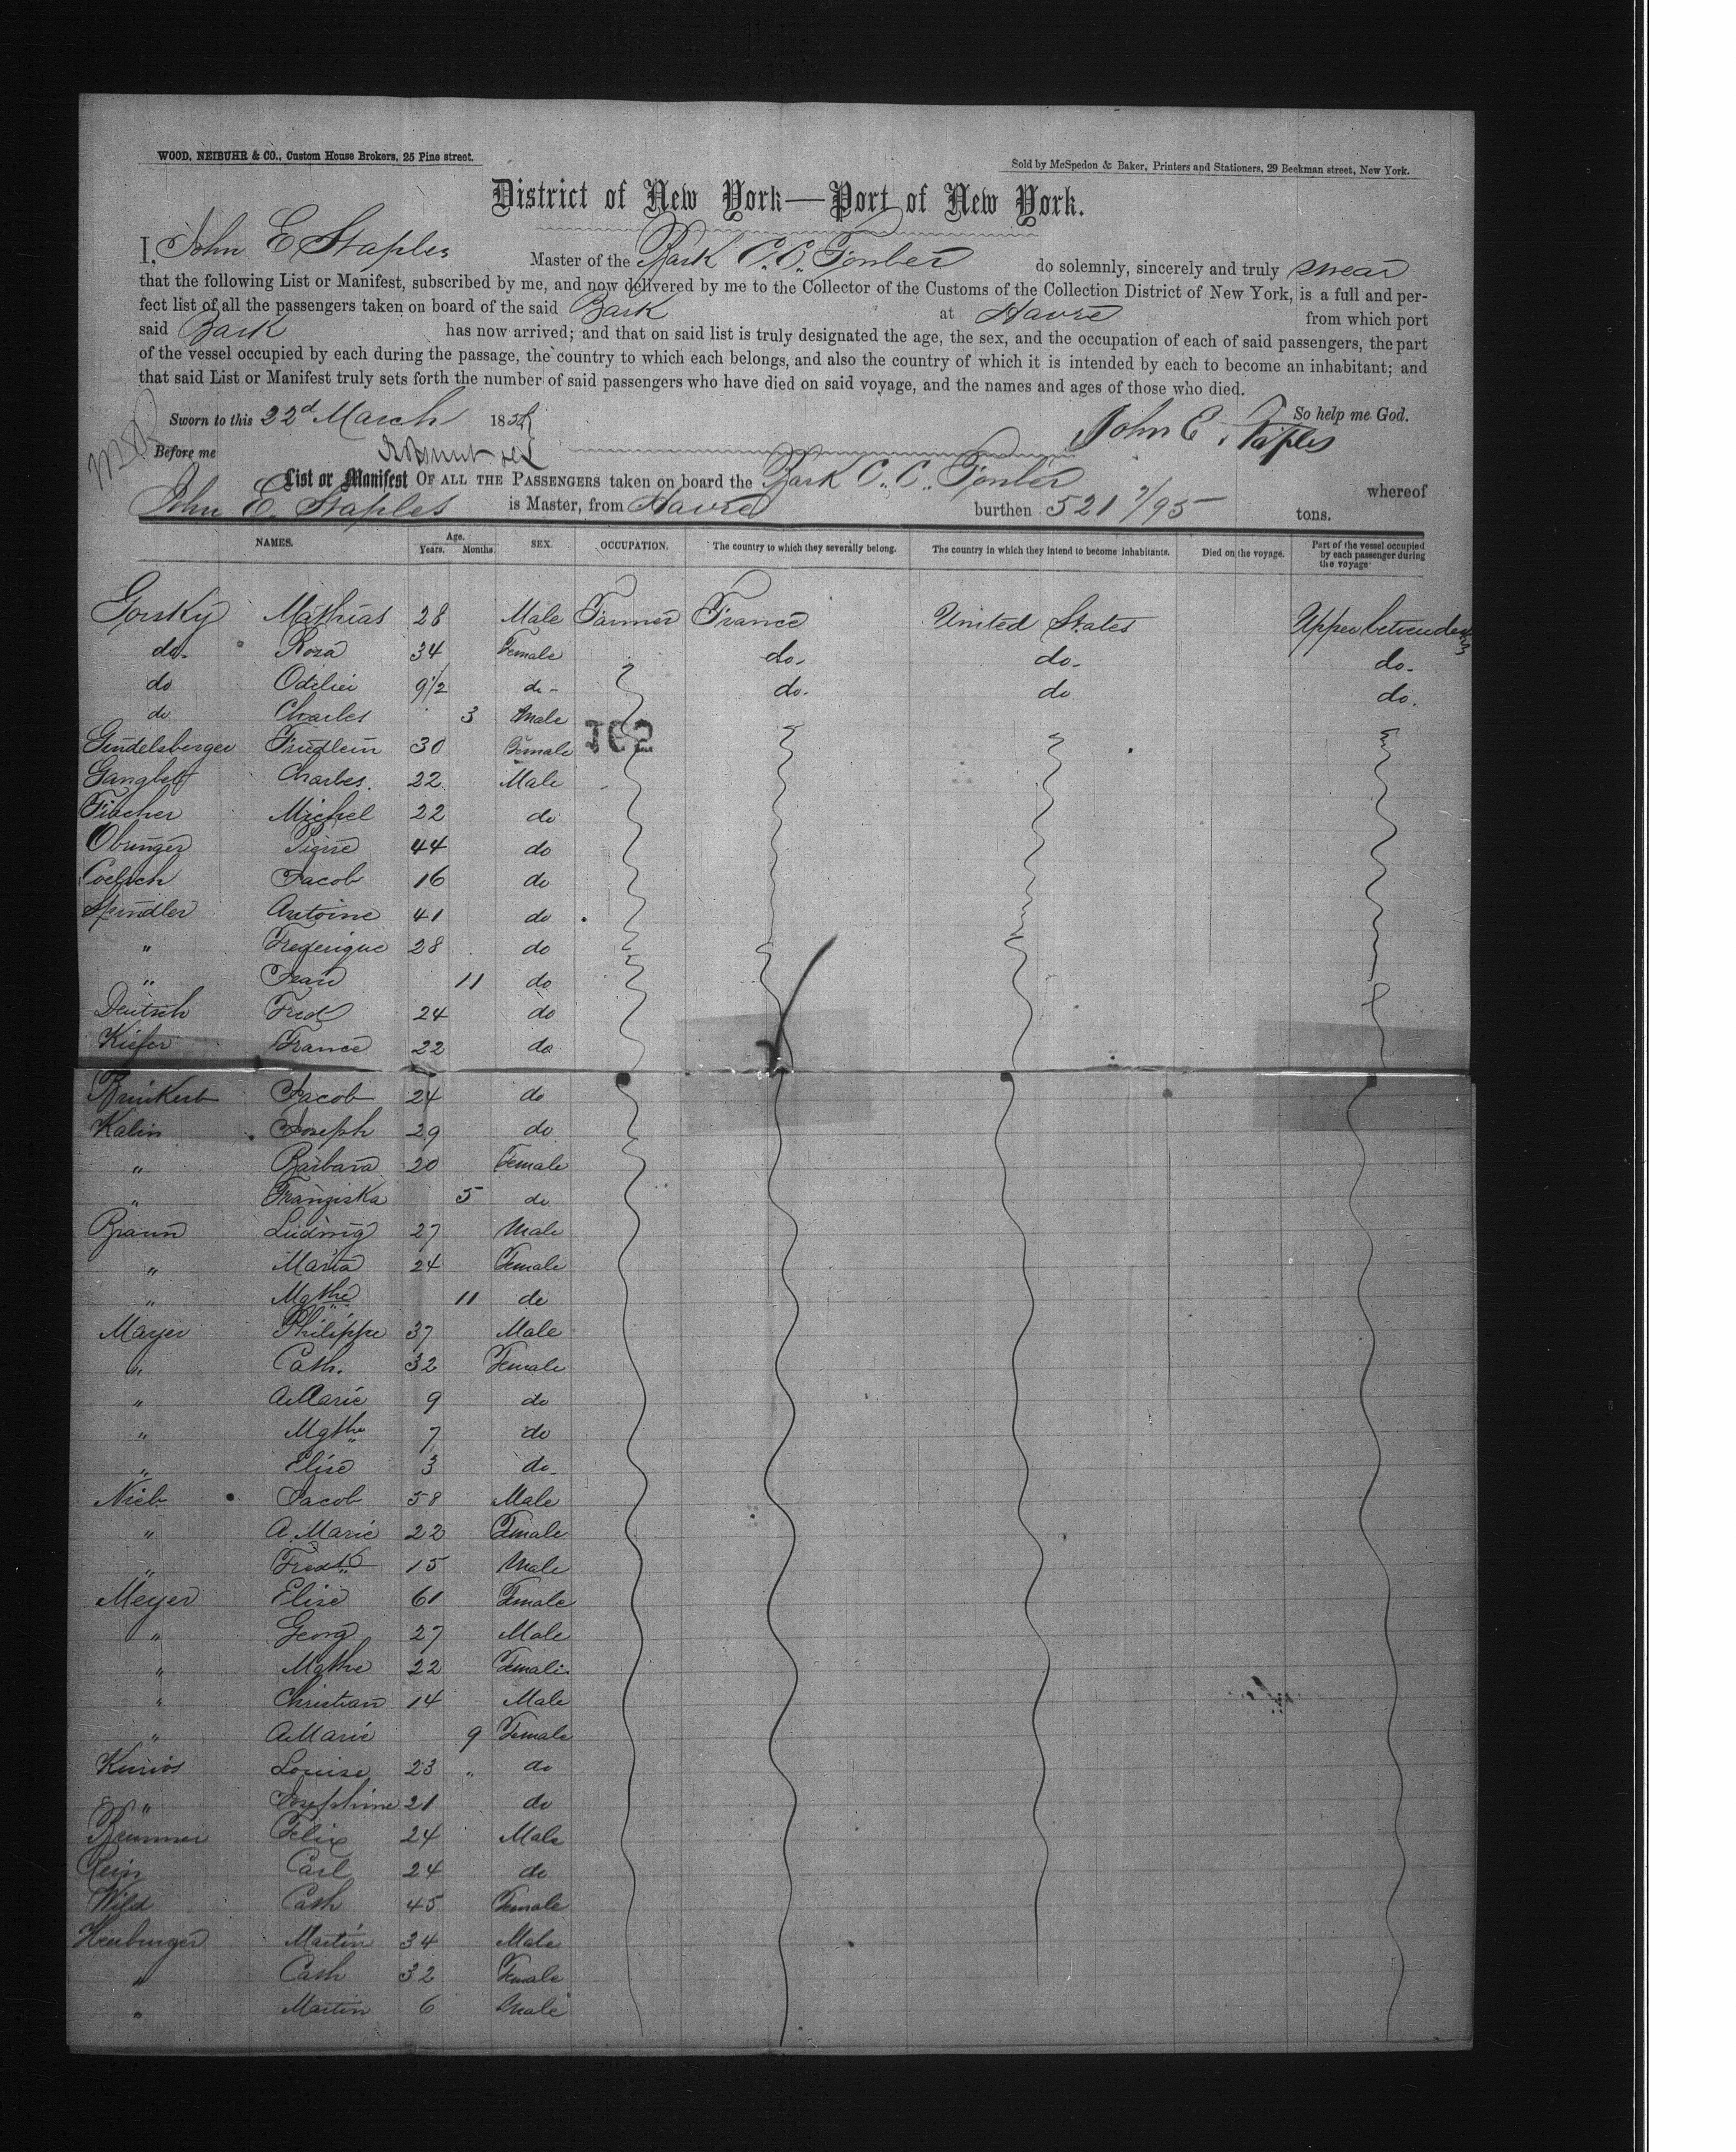 WOOD, NEIBUHR & CO., Custom House Brokers, 25 Pine street.
Sold by McSpedon & Baker, Printers and Stationers, 29 Beekman street, New York.
District of New York—Port of New York.
I, John E Staples Master of the Bark C. C. do solemnly, sincerely and truly swear
that the following List or Manifest, subscribed by me, and now delivered by me to the Collector of the Customs of the Collection District of New York, is a full and per-
fect list of all the passengers taken on board of the said Bark at Havre from which port
said Bark has now arrived; and that on said list is truly designated the age, the sex, and the occupation of each of said passengers, the part
of the vessel occupied by each during the passage, the country to which each belongs, and also the country of which it is intended by each to become an inhabitant; and
that said List or Manifest truly sets forth the number of said passengers who have died on said voyage, and the names and ages of those who died.
Sworn to this 22d March 185 So help me God.
John E. Staples
Before me
List or Manifest OF ALL THE PASSENGERS taken on board the Bark C. C. whereof
John E. Staples is Master, from Havre burthen 521 7/95 tons.
NAMES. Age. Years. Months. SEX. OCCUPATION. The country to which they severally belong. The country in which they intend to become inhabitants. Died on the voyage. Part of the vessel occupied by each passenger during the voyage
Gorsky Mathias 28 Male Farmer France United States Upper between decks
do. Roza 34 Female do. do. do.
do Odilie 9 1/2 do - do. do do.
do Charles 3 Male
Gindelsberger Friedlein 30 Female 702
Charles. 22 Male
Fischer Michel 22 do
Obringer Pierre 44 do
Jacob 16 do
Spindler Antoine 41 do
" Frederique 28 do
" Jean 11 do
Deutsch Fred 24 do
Kiefer France 22 do
Jacob 24 do
Kalin Joseph 29 do
" Barbara 20 Female
" Franziska 5 do
Braun Ludwig 27 Male
" Maria 24 Female
" Mgthe 11 do
Mayer Philippe 37 Male
" Cath. 32 Female
" A Marie 9 do
" Mgthe 7 do
" Elise 3 do
Nieb Jacob 58 Male
" A. Marie 22 Female
" Fredk 15 Male
Meyer Elise 61 Female
" Georg 27 Male
" Mgthe 22 Female
" Christian 14 Male
" A Marie 9 Female
Louise 23 " do
" Josephine 21 do
Brunner Felix 24 Male
Carl 24 do
Wild Cath 45 Female
Martin 34 Male
" Cath 32 Female
" Martin 6 Male